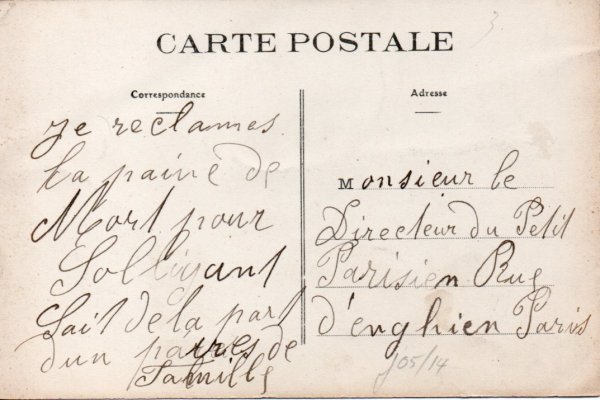 CARTE POSTALE
3
Correspondance
je reclames
la paine de
Mort pour
Solliyant
fait de la part
dun paires de
Famille
Adresse
Monsieur le
Directeur du Petit
Parisien Rue
d'enghien Paris
105/14